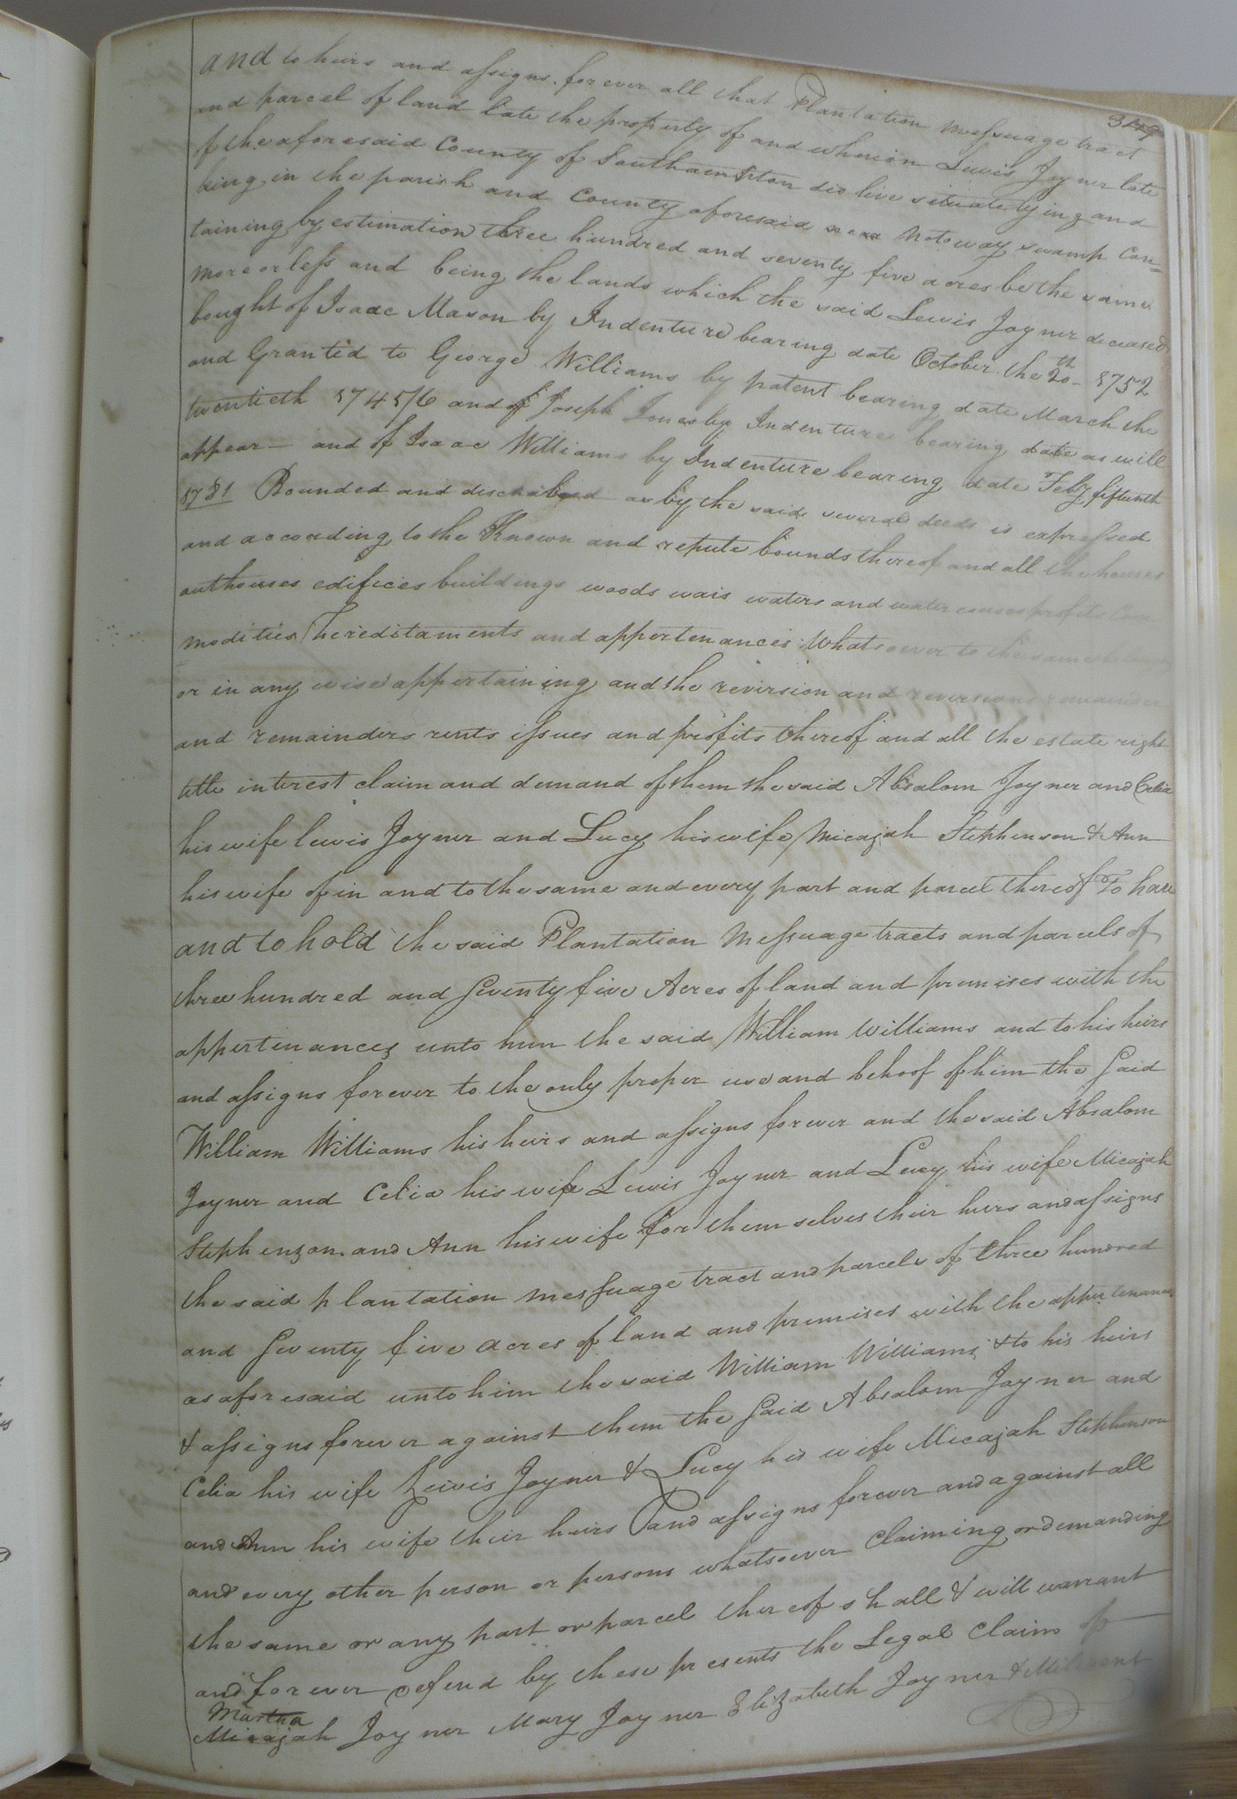 349
and to heirs and assigns forever all that Plantation messuage tract
and parcel of land late the property of and wherein Lewis Joyner late
of the aforesaid County of Southampton did live situate lying and
being in the parish and County aforesaid near Notoway swamp Con=
taining by estimation three hundred and seventy five acres be the same
more or less and being the lands which the said Lewis Joyner deceased
bought of Isaac Mason by Indenture bearing date October the 20th 1752
and Granted to George Williams by patent bearing date March the
twentieth and of Joseph Jones by Indenture bearing date as will
appear and of Isaac Williams by Indenture bearing date Feby fifteenth
Bounded and as by the said several deeds is expressed
and according to the Known and repute bounds thereof and all the houses
outhouses edifices buildings woods wais waters and water courses profits Com
modities hereditaments and appertenances whatsoever to the same
or in any wise appertaining and the revirsion and reversions remainder
and remainders rents issues and profits thereof and all the estate right
title interest claim and demand of them the said Absalom Joyner and Celia
his wife lewis Joyner and Lucy his wife Micajah Stephenson & Ann
his wife of in and to the same and every part and parcel thereof To have
and to hold the said Plantation Messuage tracts and parcels of
three hundred and Seventy five Acres of land and premises with the
appertenances unto him the said William Williams and to his heirs
and assigns forever to the only proper use and behoof of him the Said
William Williams his heirs and assigns forever and the said Absalom
Joyner and Celia his wife Lewis Joyner and Lucy his wife Micajah
Stephenson and Ann his wife for themselves their heirs and assigns
the said plantation messuage tract and parcels of three hundred
and Seventy five acres of land and premises with the appertenances
as aforesaid unto him the said William Williams & to his heirs
& assigns forever against them the Said Absalom Joyner and
Celia his wife Lewis Joyner & Lucy his wife Micajah Stephenson
and Ann his wife their heirs and assigns forever and against all
and every other person or persons whatsoever Claiming or demanding
the same or any part or parcel thereof shall & will warrant
and forever defend by these presents the Legal Claim of
Martha
Micajah Joyner Mary Joyner Elizabeth Joyner & Milisent